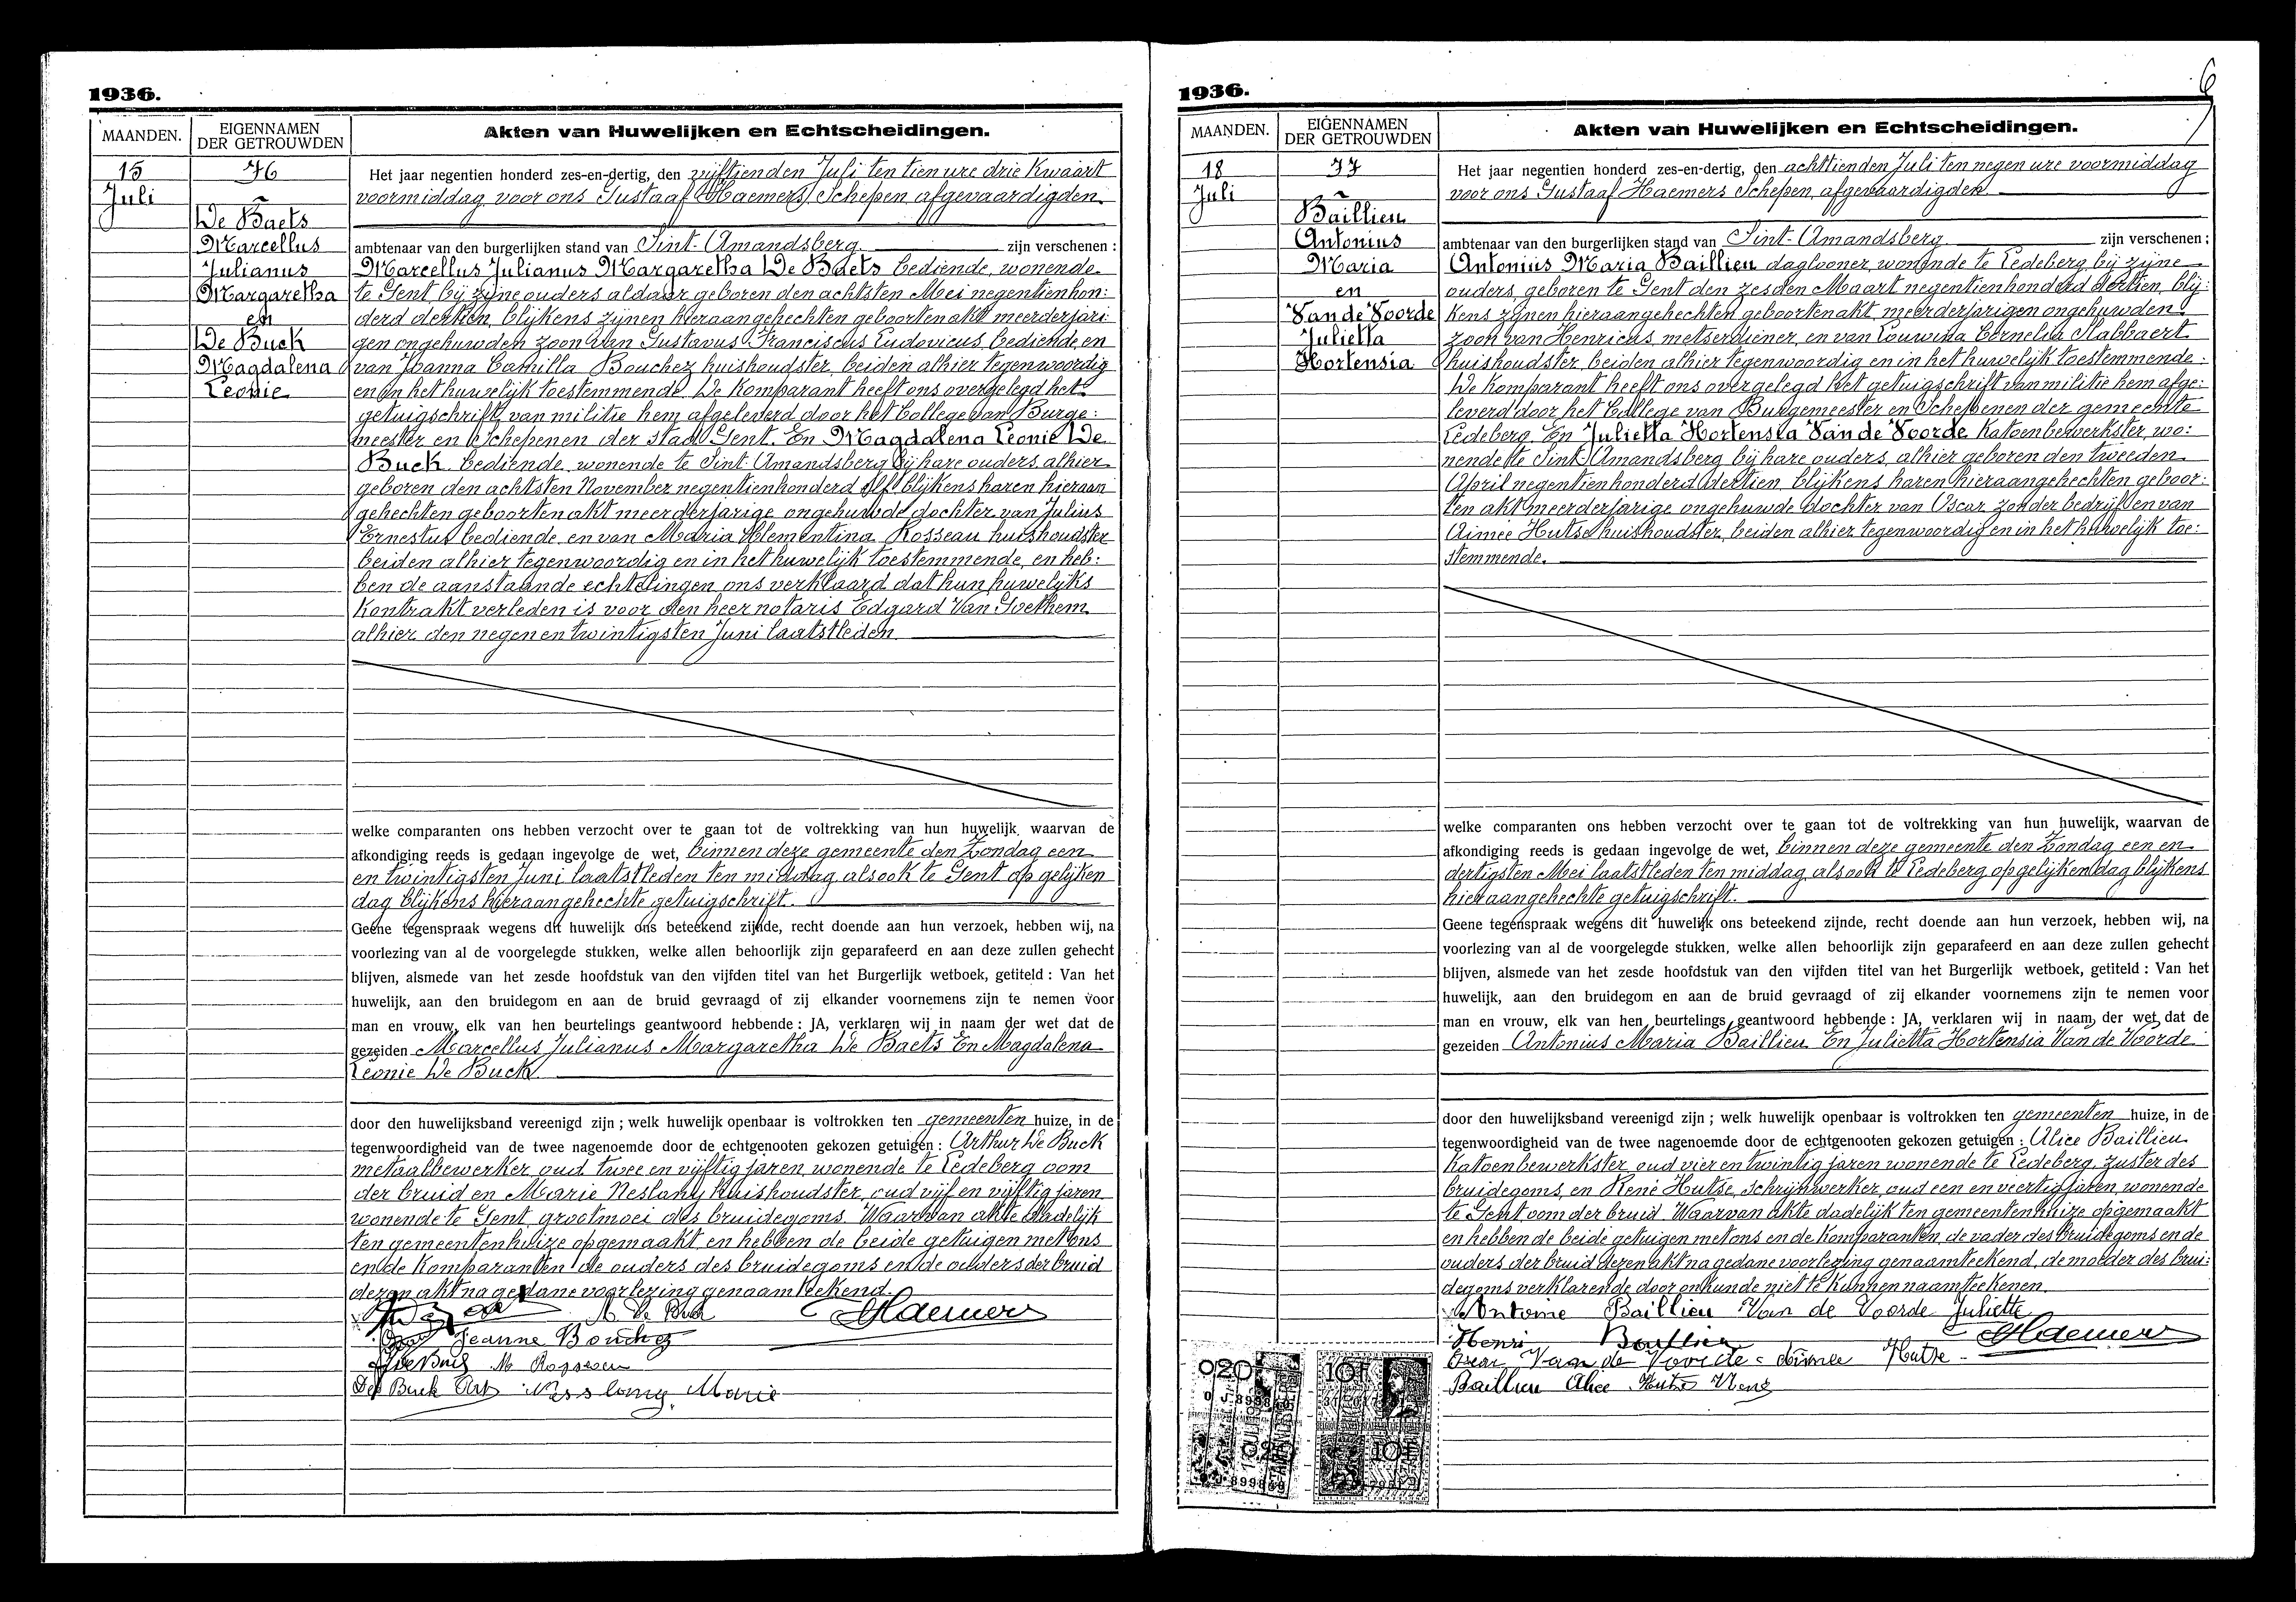 1936.
MAANDEN.
EIGENNAMEN
DER GETROUWDEN
Akten van Huwelijken en Echtscheidingen.
15
Juli
76
De Baets
Marcellus
Julianus
Margaretha
en
De Buck
Magdalena
Leonie
Het jaar negentien honderd zes-en-dertig, den vijftienden Juli ten tien ure drie kwaart
voormiddag voor ons Gustaaf Haemers Schepen afgevaardigden
ambtenaar van den burgerlijken stand van Sint-Amandsberg zijn verschenen :
Marcellus Julianus Margaretha De Baets bediende, wonende
te Gent bij zijne ouders aldaar geboren den achtsten Mei negentienhon:
derd dertien, blijkens zijnen hieraangehechten geboortenakt meerderjari
gen ongehuwden zoon van Gustavus Franciscus Ludovicus, bediende, en
van Joanna Camilla Bouchez huishoudster, beiden alhier tegenwoordig
en in het huwelijk toestemmende. De komparant heeft ons overgelegd het
getuigschrift van militie hem afgeleverd door het College van Burge:
meester en Schepenen der stad Gent. En Magdalena Leonie De
Buck bediende, wonende te Sint-Amandsberg bij hare ouders, alhier
geboren den achtsten November negentienhonderd elf blijkens haren hieraan
gehechten geboortenakt meerderjarige ongehuwde dochter van Julius
Ernestus bediende, en van Maria Clementina Rosseau huishoudster
beiden alhier tegenwoordig en in het huwelijk toestemmende, en heb:
ben de aanstaande echtelingen ons verklaard dat hun huwelijks
kontrakt verleden is voor den heer notaris Edgard Van Goethem
alhier den negen en twintigsten Juni laatstleden
welke comparanten ons hebben verzocht over te gaan tot de voltrekking van hun huwelijk, waarvan de
afkondiging reeds is gedaan ingevolge de wet, binnen deze gemeente den Zondag een
en twintigsten Juni laatstleden ten middag alsook te Gent op gelijken
dag blijkens hieraangehechte getuigschrift.
Geene tegenspraak wegens dit huwelijk ons beteekend zijnde, recht doende aan hun verzoek, hebben wij, na
voorlezing van al de voorgelegde stukken, welke allen behoorlijk zijn geparafeerd en aan deze zullen gehecht
blijven, alsmede van het zesde hoofdstuk van den vijfden titel van het Burgerlijk wetboek, getiteld : Van het
huwelijk, aan den bruidegom en aan de bruid gevraagd of zij elkander voornemens zijn te nemen voor
man en vrouw, elk van hen beurtelings geantwoord hebbende : JA, verklaren wij in naam der wet dat de
gezeiden Marcellus Julianus Margaretha De Baets En Magdalena
Leonie De Buck
door den huwelijksband vereenigd zijn ; welk huwelijk openbaar is voltrokken ten gemeenten huize, in de
tegenwoordigheid van de twee nagenoemde door de echtgenooten gekozen getuigen : Arthur De Buck
metaalbewerker, oud twee en vijftig jaren, wonende te Ledeberg oom
der bruid en Marie Neslany huishoudster, oud vijf en vijftig jaren
wonende te Gent, grootmoei des bruidegoms. Waarvan akte dadelijk
ten gemeentenhuize opgemaakt, en hebben de beide getuigen met ons
en de komparanten de ouders des bruidegoms en de ouders der bruid
dezen akt na gedane voorlezing genaamteekend.
M. De Buck Haemers
Jeanne Bouchez
De Buck Art Marie
1936.
6
MAANDEN.
EIGENNAMEN
DER GETROUWDEN
Akten van Huwelijken en Echtscheidingen.
18
Juli
77
Baillieu
Antonius
Maria
en
Van de Voorde
Julietta
Hortensia
Het jaar negentien honderd zes-en-dertig, den achttienden Juli ten negen ure voormiddag
voor ons Gustaaf Haemers Schepen, afgevaardigden
ambtenaar van den burgerlijken stand van Sint-Amandsberg zijn verschenen ;
Antonius Maria Baillieu daglooner, wonende te Ledeberg bij zijne
ouders, geboren te Gent den zesden Maart negentienhonderd dertien, blij:
kens zijnen hieraangehechten geboortenakt, meerderjarigen ongehuwden
zoon van Henricus, metserdiener, en van Louwina Cornelia Slabbaert
huishoudster, beiden alhier tegenwoordig en in het huwelijk toestemmende.
De komparant heeft ons overgelegd het getuigschrift van militie hem afge:
leverd door het College van Burgemeester en Schepenen der gemeente
Ledeberg. En Julietta Hortensia Van de Voorde katoenbewerkster, wo:
nende te Sint-Amandsberg bij hare ouders, alhier geboren den tweeden
April negentienhonderd dertien, blijkens haren hieraangehechten geboor:
ten akt meerderjarige ongehuwde dochter van Oscar zonder bedrijf, en van
Aimée Hutse huishoudster, beiden alhier tegenwoordig en in het huwelijk toe:
stemmende.
welke comparanten ons hebben verzocht over te gaan tot de voltrekking van hun huwelijk, waarvan de
afkondiging reeds is gedaan ingevolge de wet, binnen deze gemeente den Zondag een en
dertigsten Mei laatstleden ten middag, alsook te Ledeberg op gelijken dag blijkens
hieraangehechte getuigschrift.
Geene tegenspraak wegens dit huwelijk ons beteekend zijnde, recht doende aan hun verzoek, hebben wij, na
voorlezing van al de voorgelegde stukken, welke allen behoorlijk zijn geparafeerd en aan deze zullen gehecht
blijven, alsmede van het zesde hoofdstuk van den vijfden titel van het Burgerlijk wetboek, getiteld : Van het
huwelijk, aan den bruidegom en aan de bruid gevraagd of zij elkander voornemens zijn te nemen voor
man en vrouw, elk van hen beurtelings geantwoord hebbende : JA, verklaren wij in naam der wet dat de
gezeiden Antonius Maria Baillieu En Julietta Hortensia Van de Voorde
door den huwelijksband vereenigd zijn ; welk huwelijk openbaar is voltrokken ten gemeenten huize, in de
tegenwoordigheid van de twee nagenoemde door de echtgenooten gekozen getuigen : Alice Baillieu
katoenbewerkster, oud vier en twintig jaren wonende te Ledeberg, zuster des
bruidegoms, en René Hutse, schrijnwerker, oud een en veertig jaren, wonende
te Gent, oom der bruid. Waarvan akte dadelijk ten gemeentenhuize opgemaakt
en hebben de beide getuigen met ons en de komparanten, de vader des bruidegoms en de
ouders der bruid dezen akt na gedane voorlezing genaamteekend, de moeder des brui:
degoms verklarende door onkunde niet te kunnen naamteekenen.
Antoine Baillieu Van de Voorde Juliette
Henri Baillieu Haemers
Oscar Van de Voorde Aimée Hutse
Baillieu Alice Hutse René
020
10F
020
10F